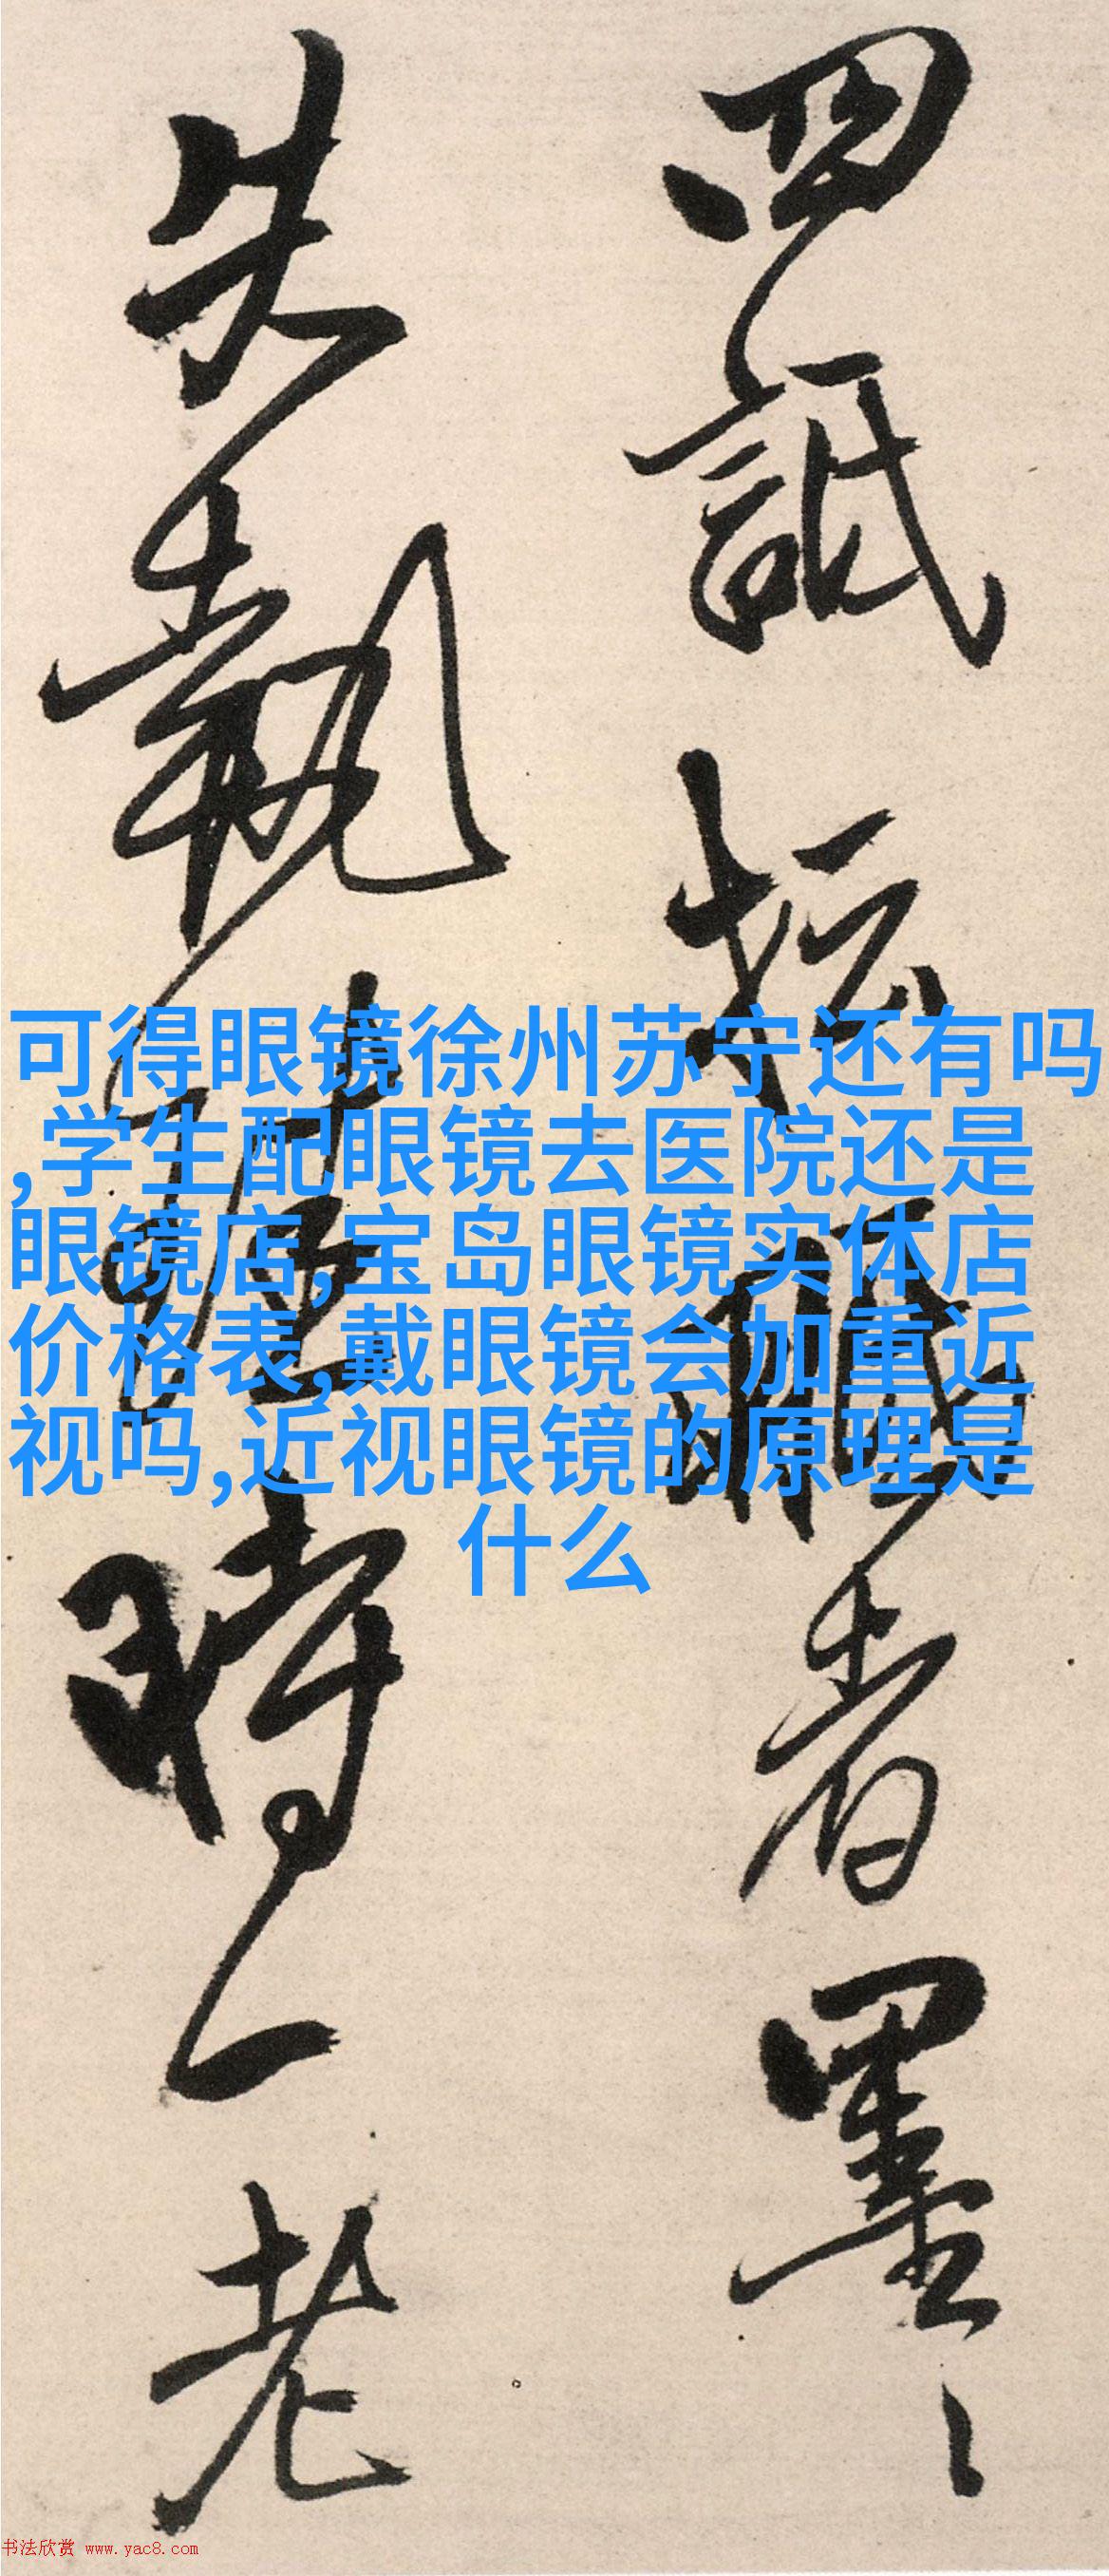 四詆
者墨
失執
時一老
可得眼镜徐州苏宁还有吗
,学生配眼镜去医院还是
眼镜店,宝岛眼镜实体店
价格表,戴眼镜会加重近
视吗,近视眼镜的原理是
什么
书法欣赏 www.yac8.com